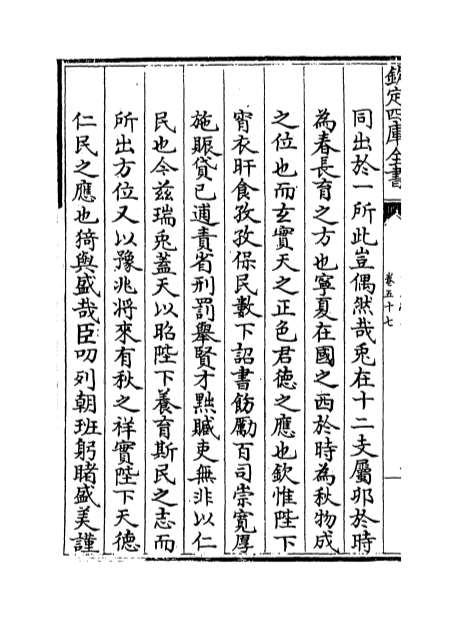 欽定四庫全書
卷五十七
同出於一所此豈偶然哉兎在十二支屬卯於時
為春長育之方也寧夏在國之西於時為秋物成
之位也而玄實天之正色君德之應也欽惟陛下
宵衣旰食孜孜保民數下詔書飭勵百司崇寬厚
施賑貸已逋責省刑罰舉賢才黜贓吏無非以仁
民也今兹瑞兎蓋天以昭陛下養育斯民之志而
所出方位又以豫兆將來有秋之祥實陛下天德
仁民之應也猗與盛哉臣叨列朝班躬睹盛美謹